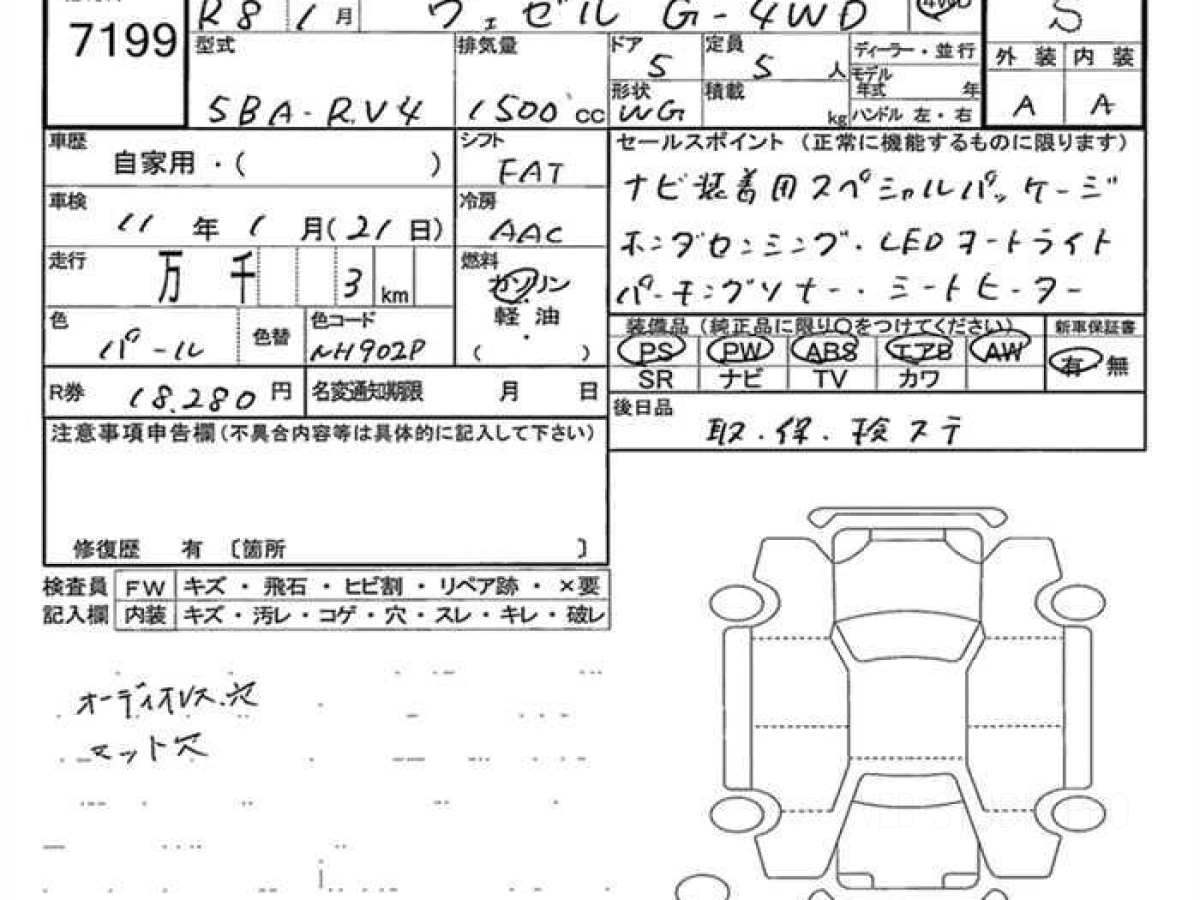 7199
R8 1月 ヴェゼル G-4WD 4WD S
型式 5BA-RV4
排気量 1500cc
ドア 5
定員 5人
ディーラー・並行
モデル年式 年
ハンドル 左・右
形状 WG
積載 kg
外装 A
内装 A
車歴 自家用・( )
シフト FAT
車検 11年1月(21日)
冷房 AAC
走行 万 千 3 km
燃料 ガソリン
軽・油
( )
色 パール
色替
色コード NH902P
R券 18,280円
名変通知期限 月 日
セールスポイント(正常に機能するものに限ります)
ナビ装着用スペシャルパッケージ
ホンダセンシング・LEDオートライト
パーキングソナー・シートヒーター
装備品(純正品に限り○をつけてください)
PS PW ABS エアB AW
SR ナビ TV カワ
新車保証書
有・無
後日品 取・保・検ステ
注意事項申告欄(不具合内容等は具体的に記入して下さい)
修復歴 有 〔箇所 〕
検査員 FW キズ・飛石・ヒビ割・リペア跡・×要
記入欄 内装 キズ・汚レ・コゲ・穴・スレ・キレ・破レ
オーディオレス.穴
マット穴